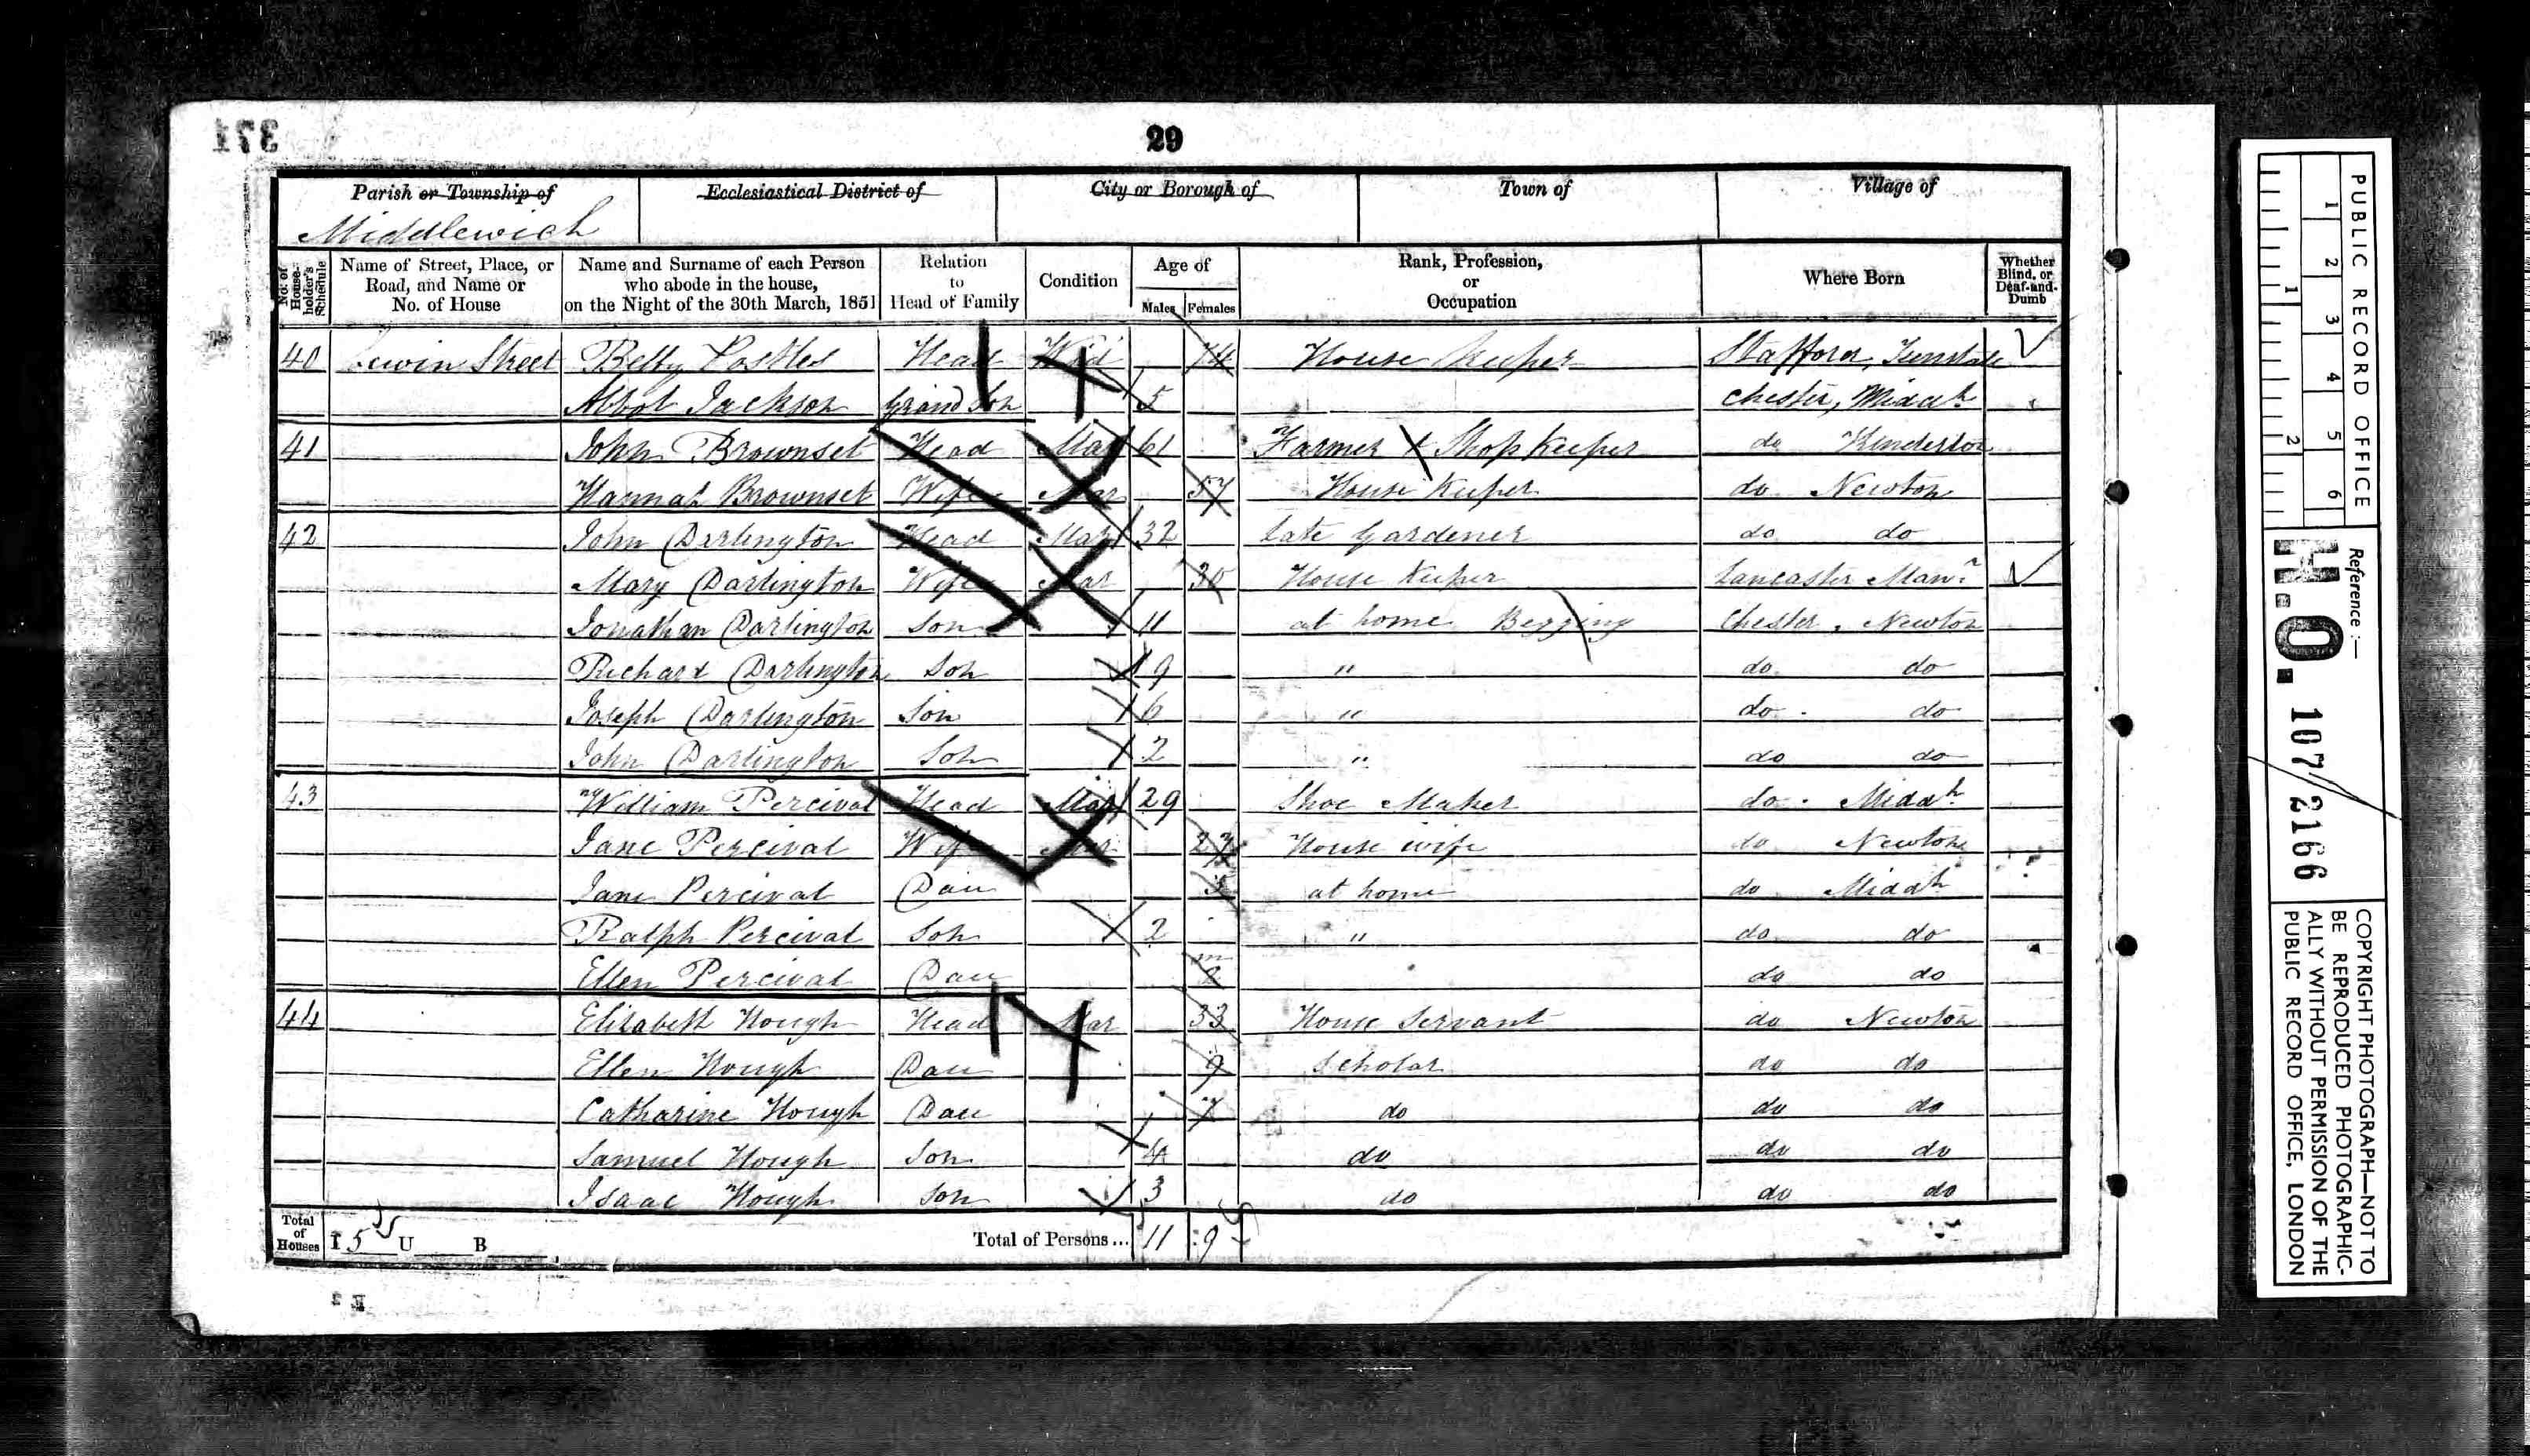 371
29
Parish or Township of
Ecclesiastical District of
City or Borough of
Town of
Village of
Middlewich
No. of House-holder's Schedule
Name of Street, Place, or Road, and Name or No. of House
Name and Surname of each Person who abode in the house, on the Night of the 30th March, 1851
Relation to Head of Family
Condition
Age of
Males
Females
Rank, Profession, or Occupation
Where Born
Whether Blind, or Deaf-and-Dumb
40 Lewin Street Betty Postles Head Wid 74 House Keeper Stafford, Tunstall
Albot Jackson Grand Son 5 Chester, Middh
41 John Brownset Head Mar 61 Farmer & Shop Keeper do Kinderton
Hannah Brownset Wife Mar 57 House Keeper do Newton
42 John Darlington Head Mar 32 Late Gardener do do
Mary Darlington Wife Mar 35 House Keeper Lancaster Manr
Jonathan Darlington Son 11 at home Begging Chester, Newton
Richard Darlington Son 9 " do do
Joseph Darlington Son 6 " do do
John Darlington Son 2 " do do
43 William Percival Head Mar 29 Shoe Maker do Middh
Jane Percival Wife Mar 27 House wife do Newton
Jane Percival Dau 5 at home do Middh
Ralph Percival Son 2 " do do
Ellen Percival Dau m 2 do do
44 Elizabeth Hough Head Mar 33 House Servant do Newton
Ellen Hough Dau 9 Scholar do do
Catharine Hough Dau 7 do do do
Samuel Hough Son 4 do do do
Isaac Hough Son 3 do do do
Total of Houses I 5 U B Total of Persons... 11 9
PUBLIC RECORD OFFICE
1 2 3 4 5 6
1 2
Reference :—
H.O. 107/2166
COPYRIGHT PHOTOGRAPH—NOT TO
BE REPRODUCED PHOTOGRAPHIC-
ALLY WITHOUT PERMISSION OF THE
PUBLIC RECORD OFFICE, LONDON